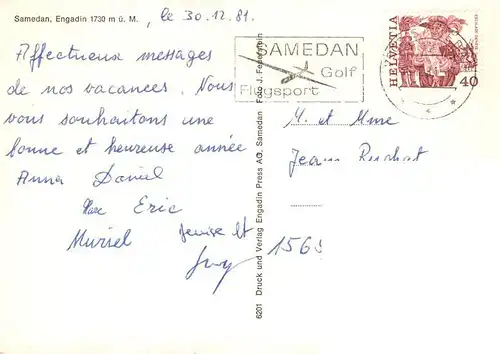 Samedan, Engadin 1730 m ü. M.
le 30.12.81.
Affectueux messages
de nos vacances. Nous
vous souhaitons une
bonne et heureuse année
Anna Daniel
Marc Eric
Muriel Denise et
Guy
SAMEDAN
Golf
Flugsport
HELVETIA
40
6201 Druck und Verlag Engadin Press AG, Samedan Foto J. Feuerstein
M. et Mme
Jean Ruchat
156